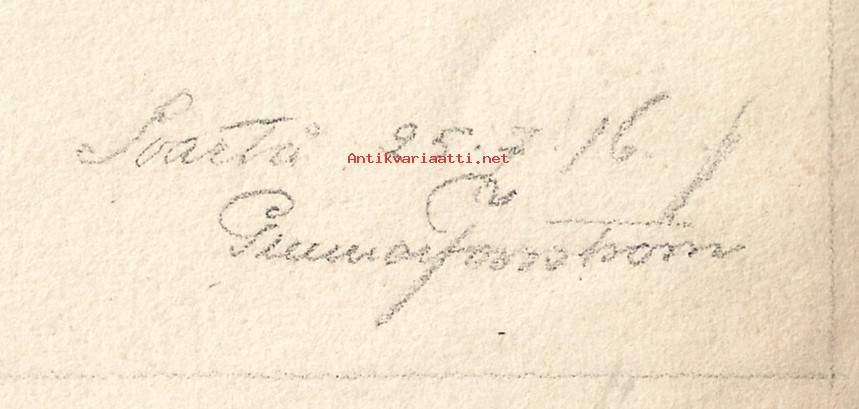 Svartå 25.7.16
Antikvariaatti.net
Gunnar Forsström